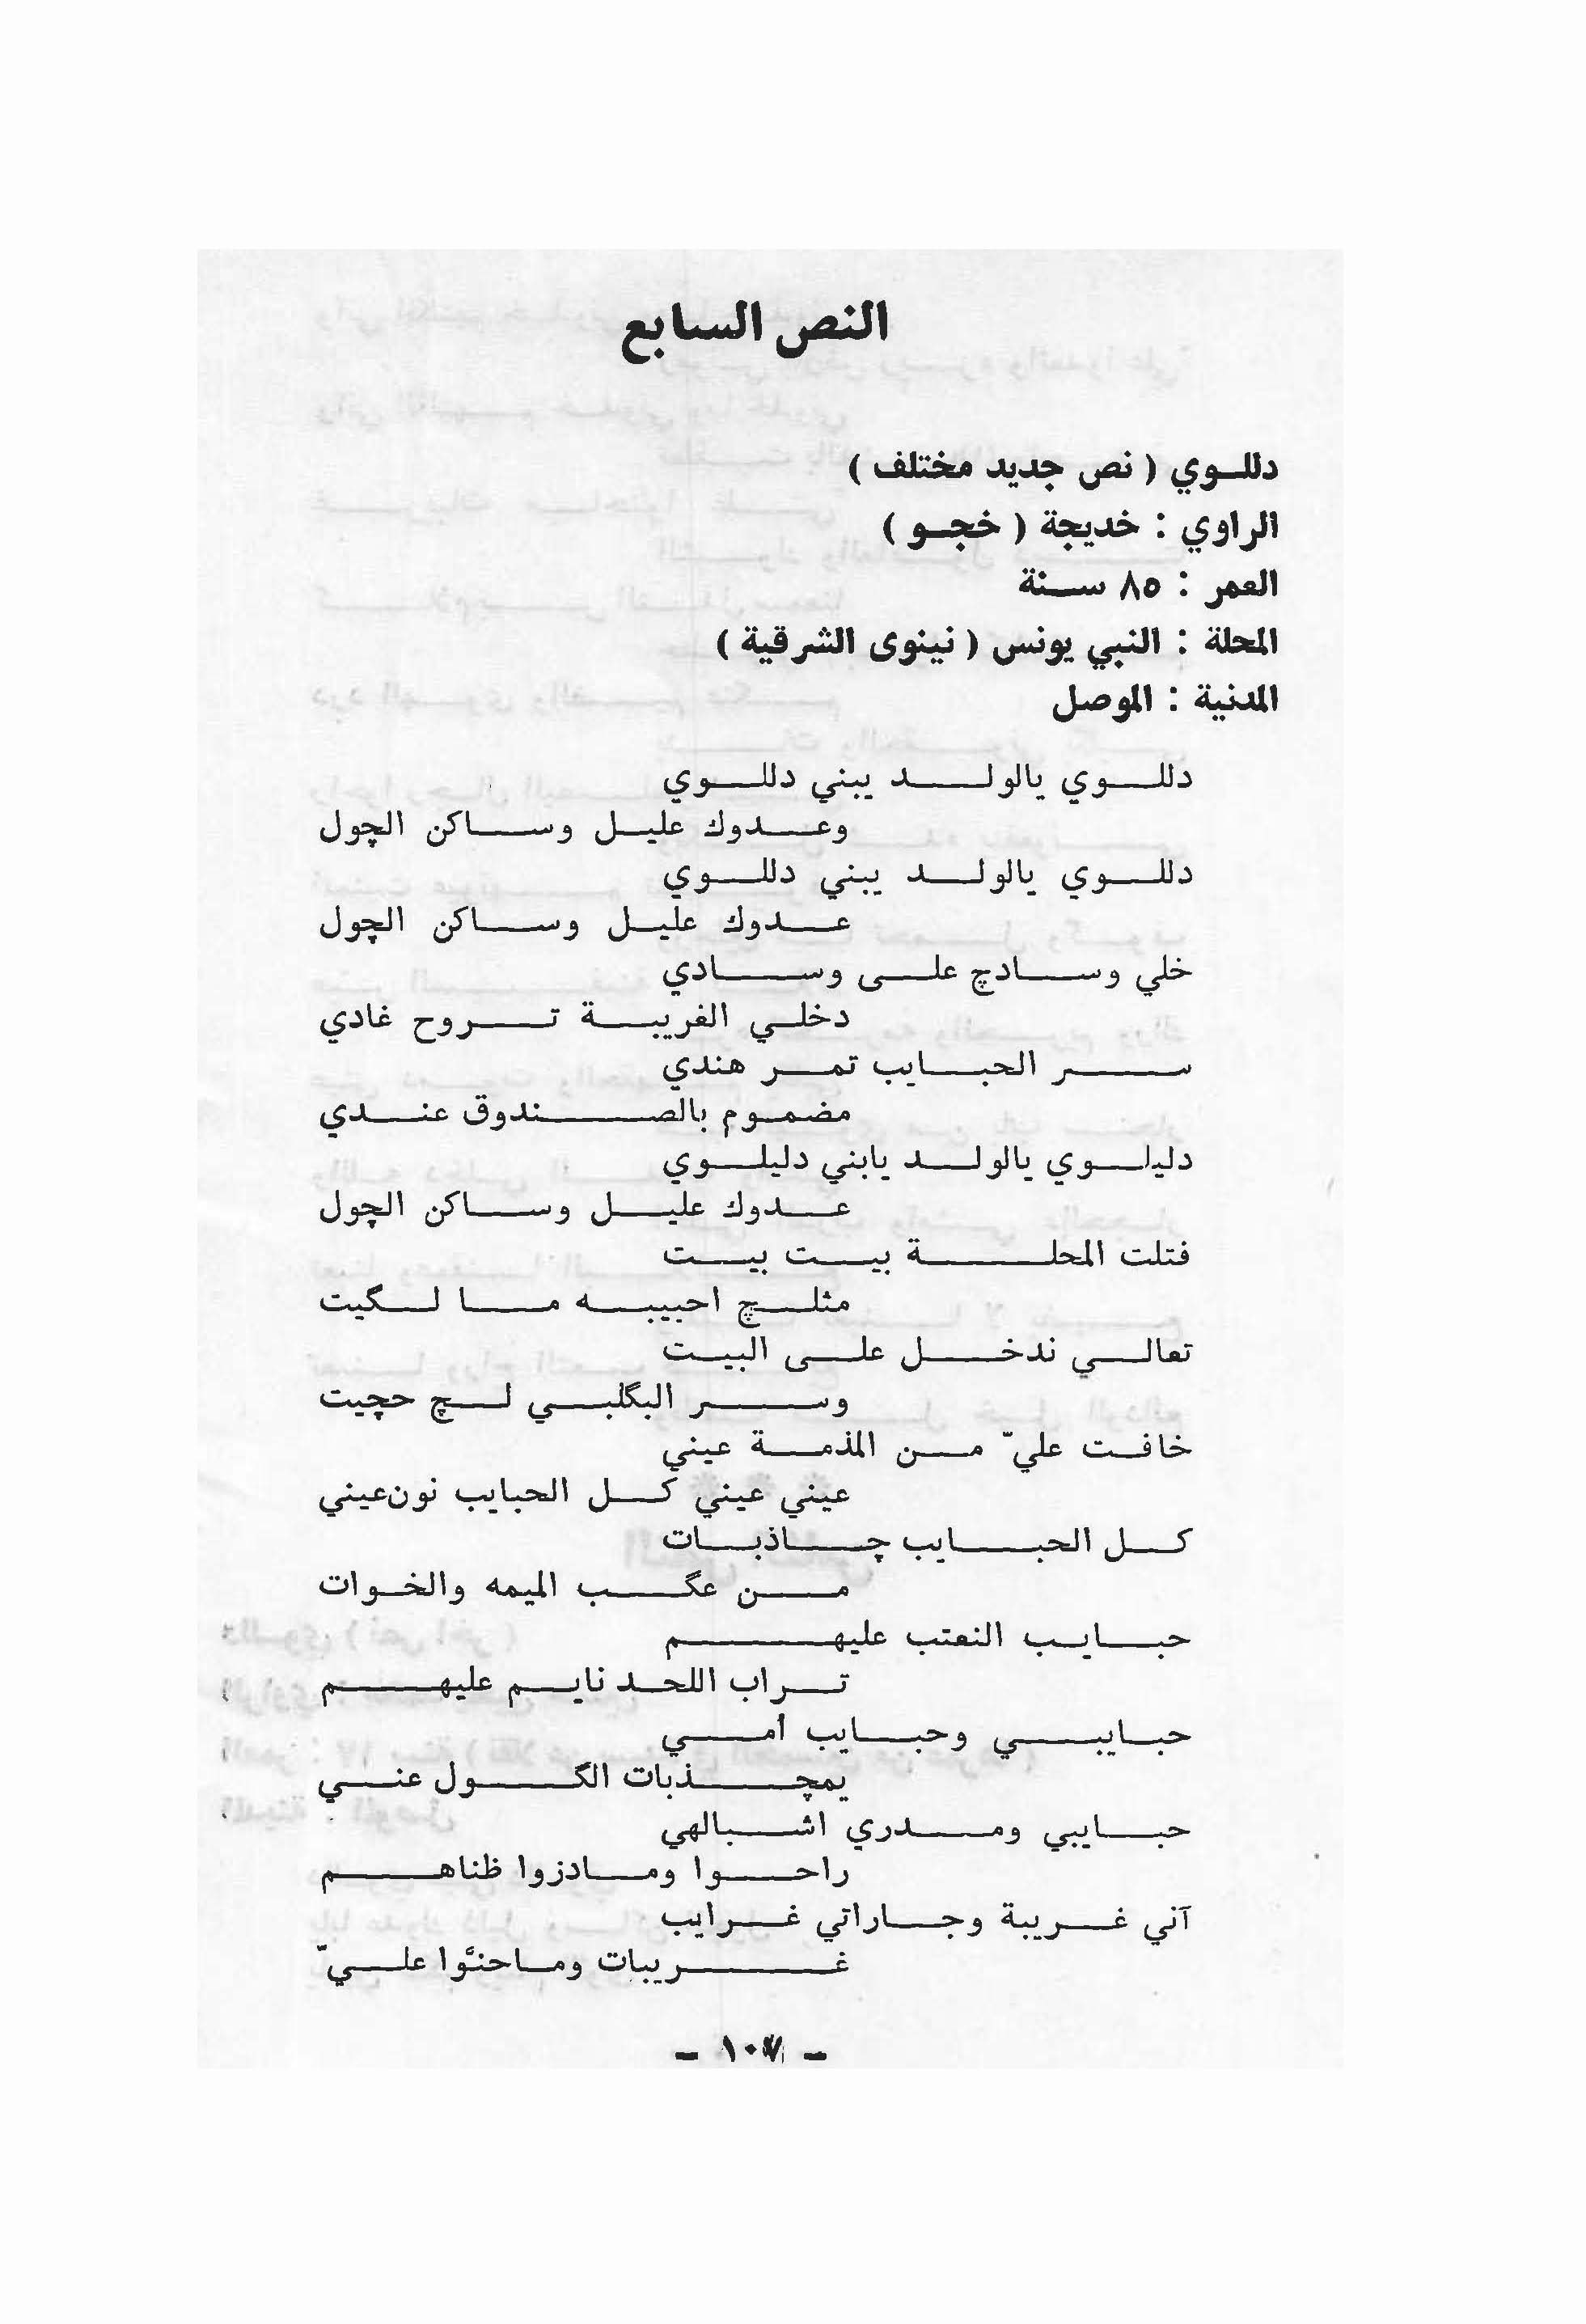 النص السابع
دللوي ( نص جديد مختلف )
الراوي : خديجة ( خجو )
العمر : ٨٥ سنة
المحلة : النبي يونس ( نينوى الشرقية )
المدنية : الموصل
دللوي يالولد يبني دللوي
وعدوك عليل وساكن الچول
دللوي يالولد يبني دللوي
عدوك عليل وساكن الچول
خلي وسادچ على وسادي
دخلي الغريبة تروح غادي
سر الحبايب تمر هندي
مضموم بالصندوق عندي
دليلوي يالولد يابني دليلوي
عدوك عليل وساكن الچول
فتلت المحلة بيت بيت
مثلچ احبيبه ما لگيت
تعالي ندخل على البيت
وسر البگلبي لچ حچيت
خافت عليّ من المذمة عيني
عيني عيني كل الحبايب نون عيني
كل الحبايب چاذبات
من عگب الميمه والخوات
حبايب النعتب عليهم
تراب اللحد نايم عليهم
حبايبي وحبايب أمي
يمچذبات الگول عني
حبايبي ومدري اشبالهي
راحوا ومادزوا ظناهم
آني غريبة وجاراتي غرايب
غريبات وماحنوا عليّ